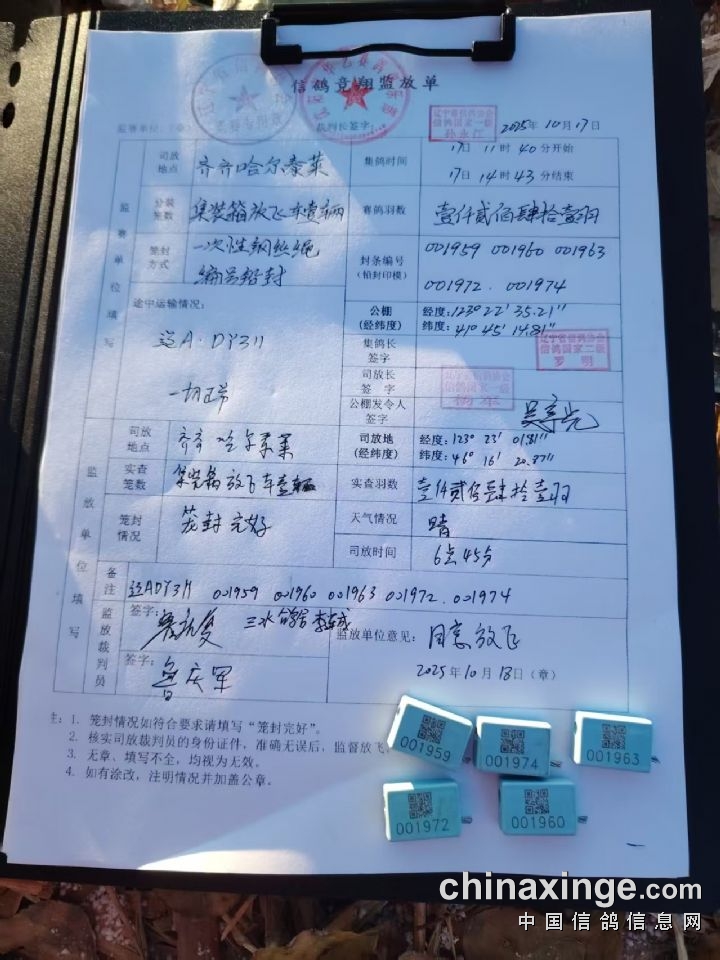 信鸽竞翔监放单
监赛单位:
裁判长签字:
辽宁省信鸽协会
信鸽国家一级
孙永江
2025年10月17日
司放地点 齐齐哈尔泰莱 集鸽时间 17日11时40分开始
17日14时43分结束
监赛单位填写
分装笼数 集装箱放飞车壹辆 赛鸽羽数 壹仟贰佰肆拾壹羽
笼封方式 一次性钢丝绳
编号铅封
封条编号(铅封印模) 001959 001960 001963
001972. 001974
途中运输情况:
辽A·DY311
一切正常
公棚(经纬度) 经度:123°22′35.21″
纬度:41°45′14.81″
集鸽长签字
信鸽国家二级
罗明
司放长签字
公棚发令人签字
监放单位填写
司放地点 齐齐哈尔泰莱 司放地(经纬度) 经度:123°23′01.81″
纬度:46°16′20.37″
实查笼数 集装箱放飞车壹辆 实查羽数 壹仟贰佰肆拾壹羽
笼封情况 笼封完好 天气情况 晴
司放时间 6点45分
备注 辽ADY311 001959 001960 001963 001972.001974
监放裁判员
签字:
签字: 鲁庆军
监放单位意见: 同意放飞
2025年10月18日(章)
注:1. 笼封情况如符合要求请填写“笼封完好”。
2. 核实司放裁判员的身份证件,准确无误后,监督放飞
3. 无章、填写不全,均视为无效。
4. 如有涂改,注明情况并加盖公章。
001959
001974
001963
001972
001960
chinaxinge.com
中国信鸽信息网